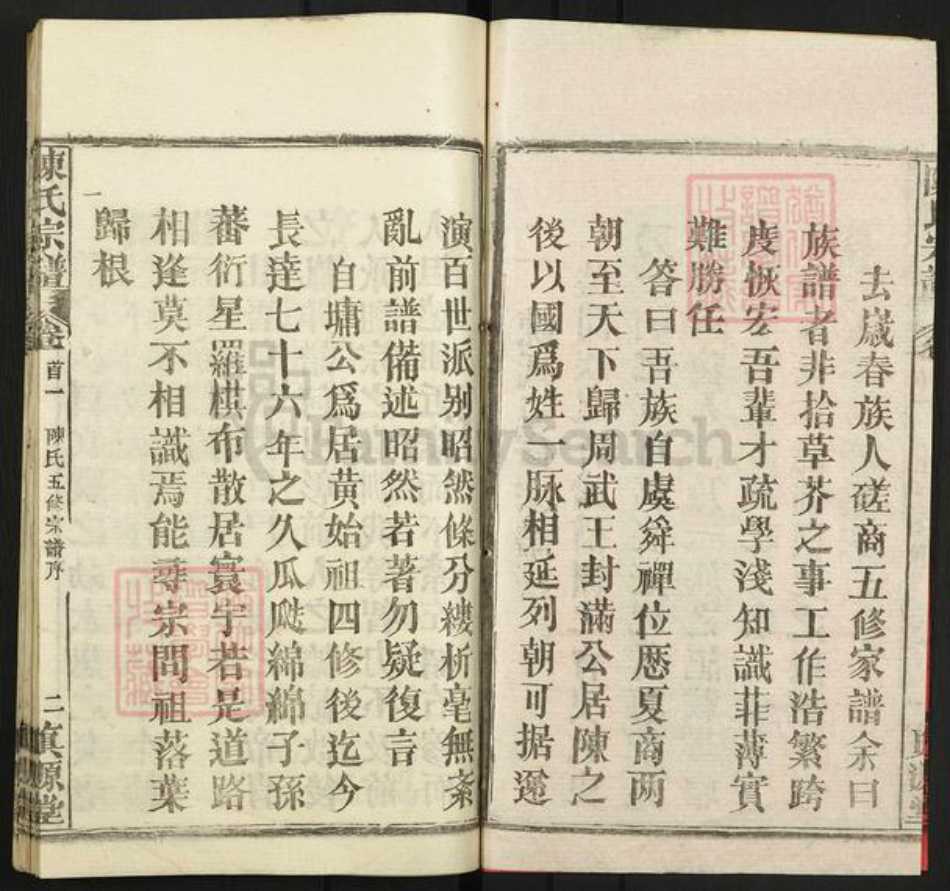 去嵗春族人磋商五修家譜余曰
族譜者非拾草芥之事工作浩繁跨
度恢宏吾輩才疏學淺知識菲薄實
難勝任
答曰吾族自虞舜禪位歷夏商两
朝至天下歸周武王封滿公居陳之
後以國爲姓一脉相延列朝可据遞
演百世派别昭然條分縷析毫無紊
亂前譜備述昭然若著勿疑復言
自墉公爲居黄始祖四修後迄今
長達七十六年之久瓜瓞綿綿子孫
蕃衍星羅棋布散居寰宇若是道路
相逢莫不相識焉能尋宗問祖落葉
歸根
陳氏宗譜
卷首一
陳氏五修宗譜序
二
真源堂
FamilySearch